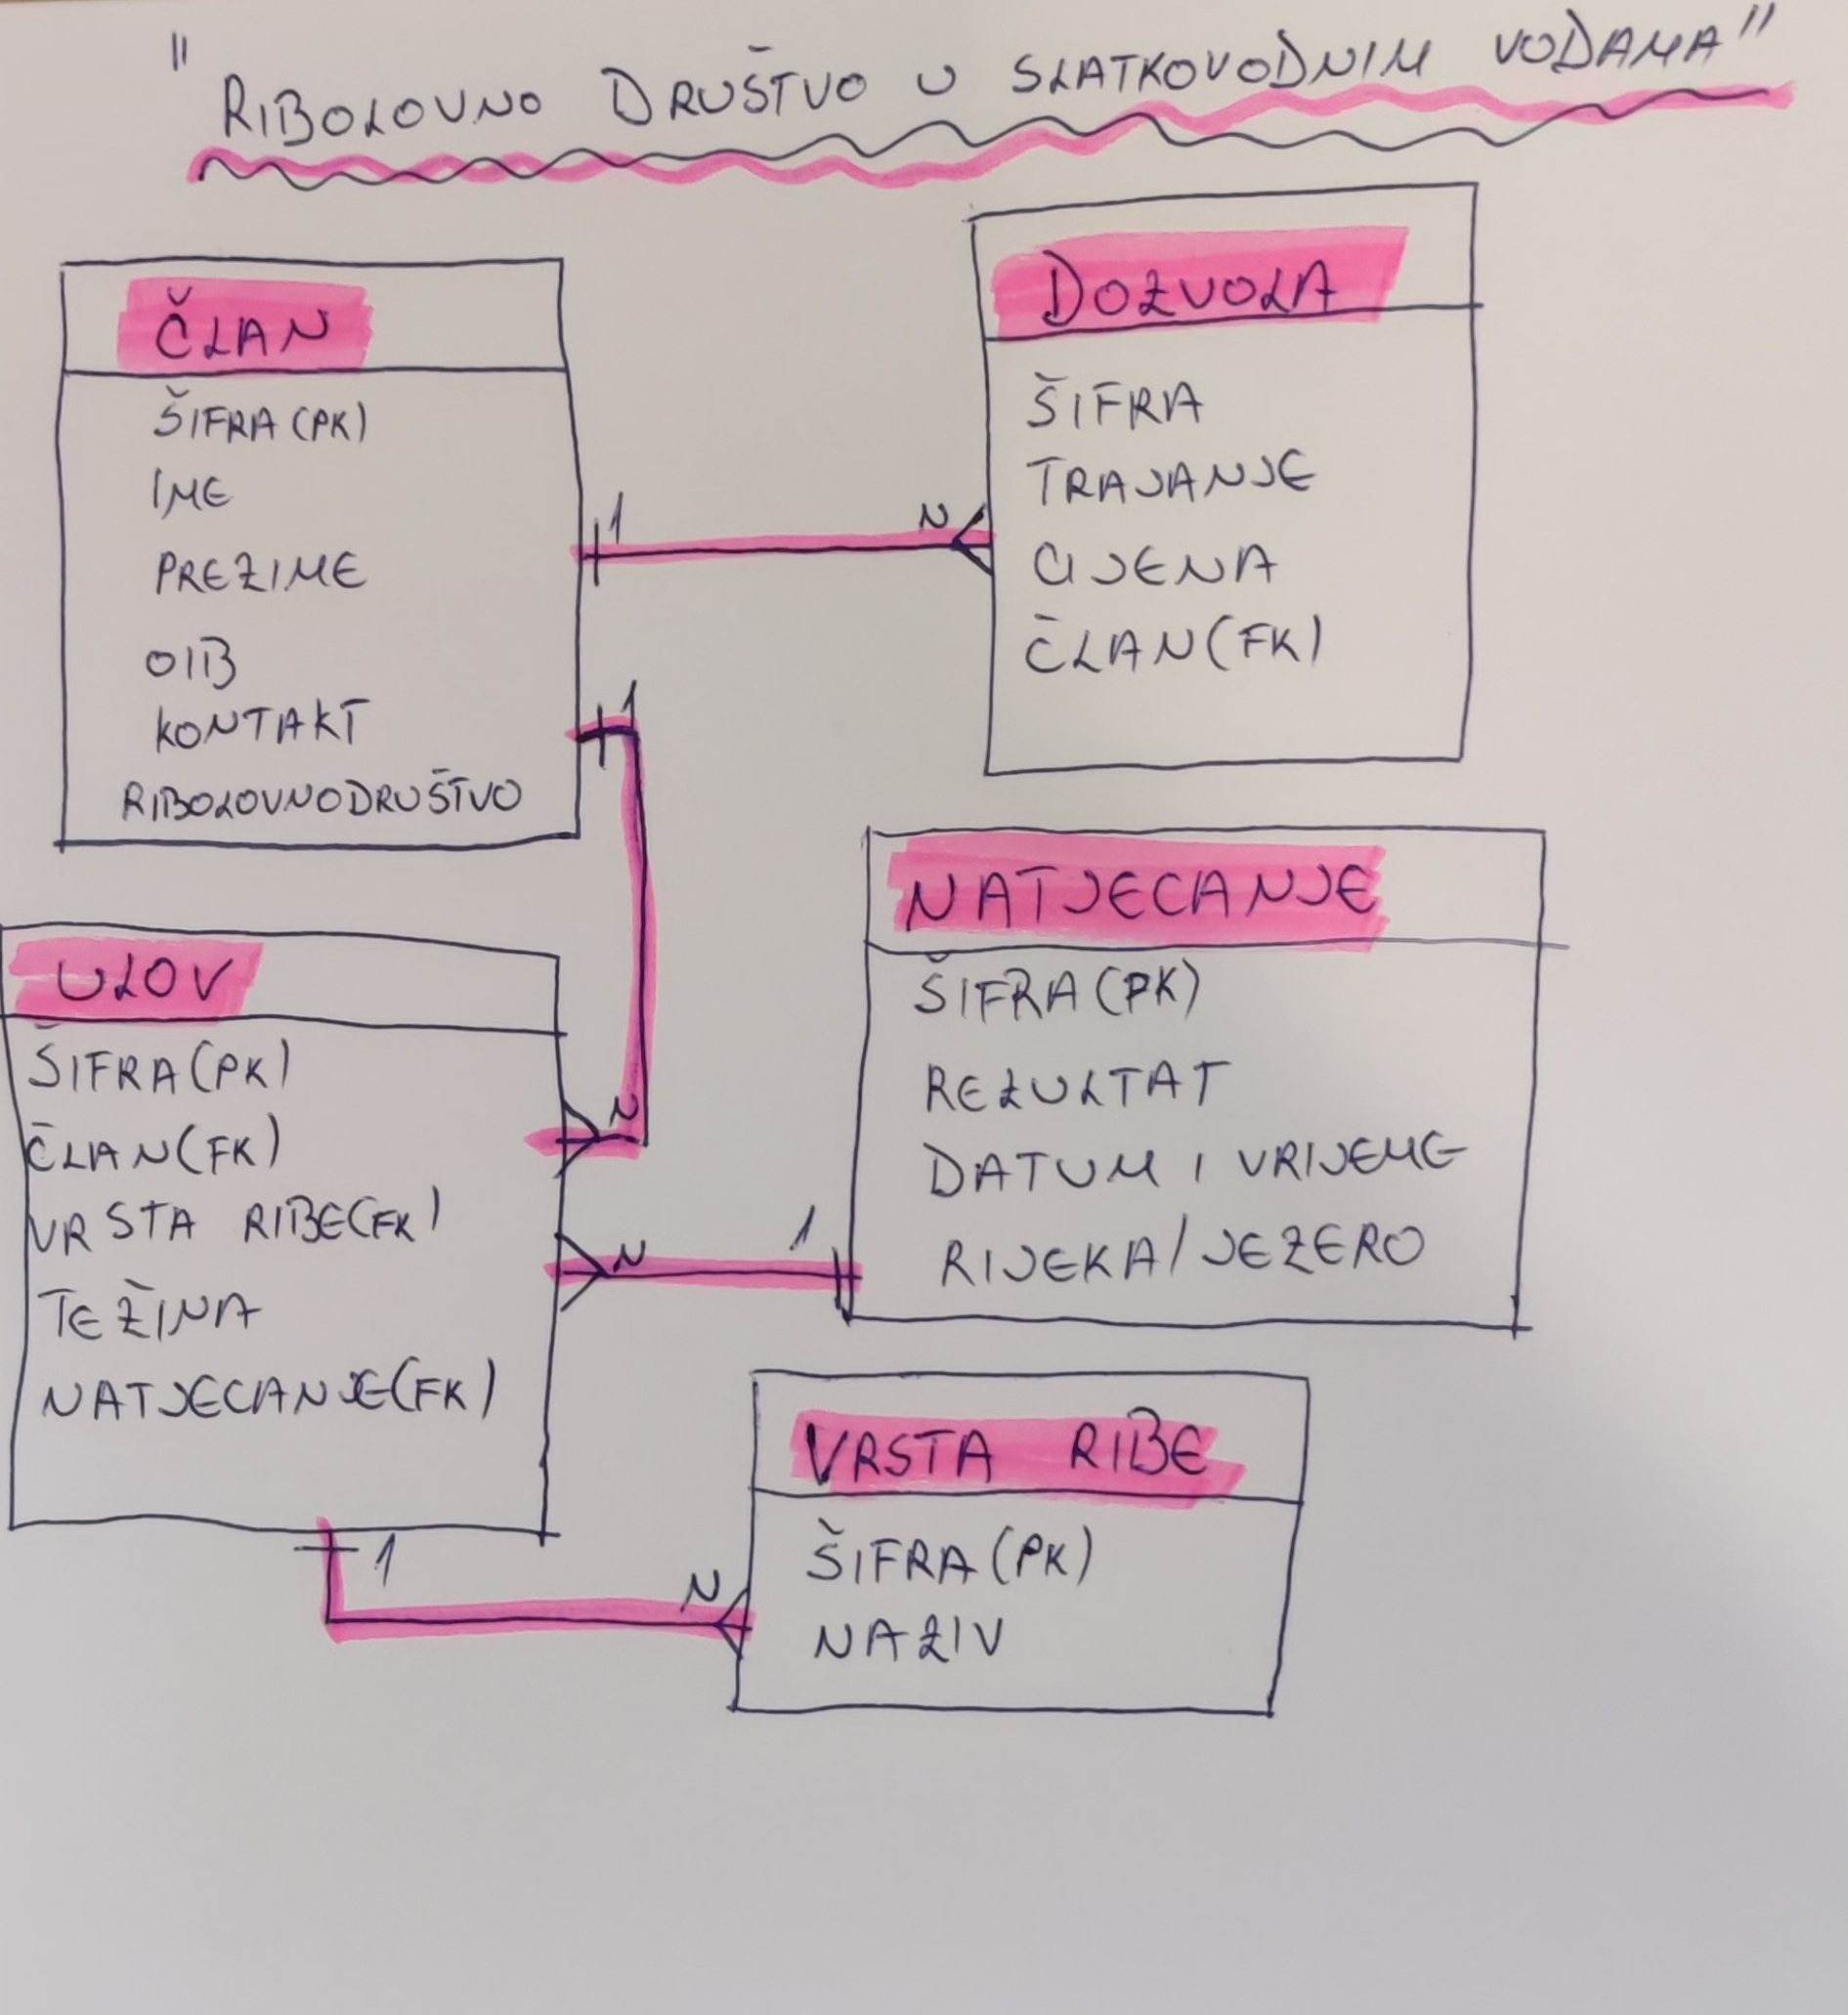 "RIBOLOVNO DRUŠTVO U SLATKOVODNIM VODAMA"
ČLAN
ŠIFRA (PK)
IME
PREZIME
OIB
KONTAKT
RIBOLOVNODRUŠTVO
DOZVOLA
ŠIFRA
TRAJANJE
CIJENA
ČLAN (FK)
1
N
1
N
ULOV
ŠIFRA (PK)
ČLAN (FK)
VRSTA RIBE (FK)
TEŽINA
NATJECANJE (FK)
NATJECANJE
ŠIFRA (PK)
REZULTAT
DATUM I VRIJEME
RIJEKA/JEZERO
N
1
1
N
VRSTA RIBE
ŠIFRA (PK)
NAZIV